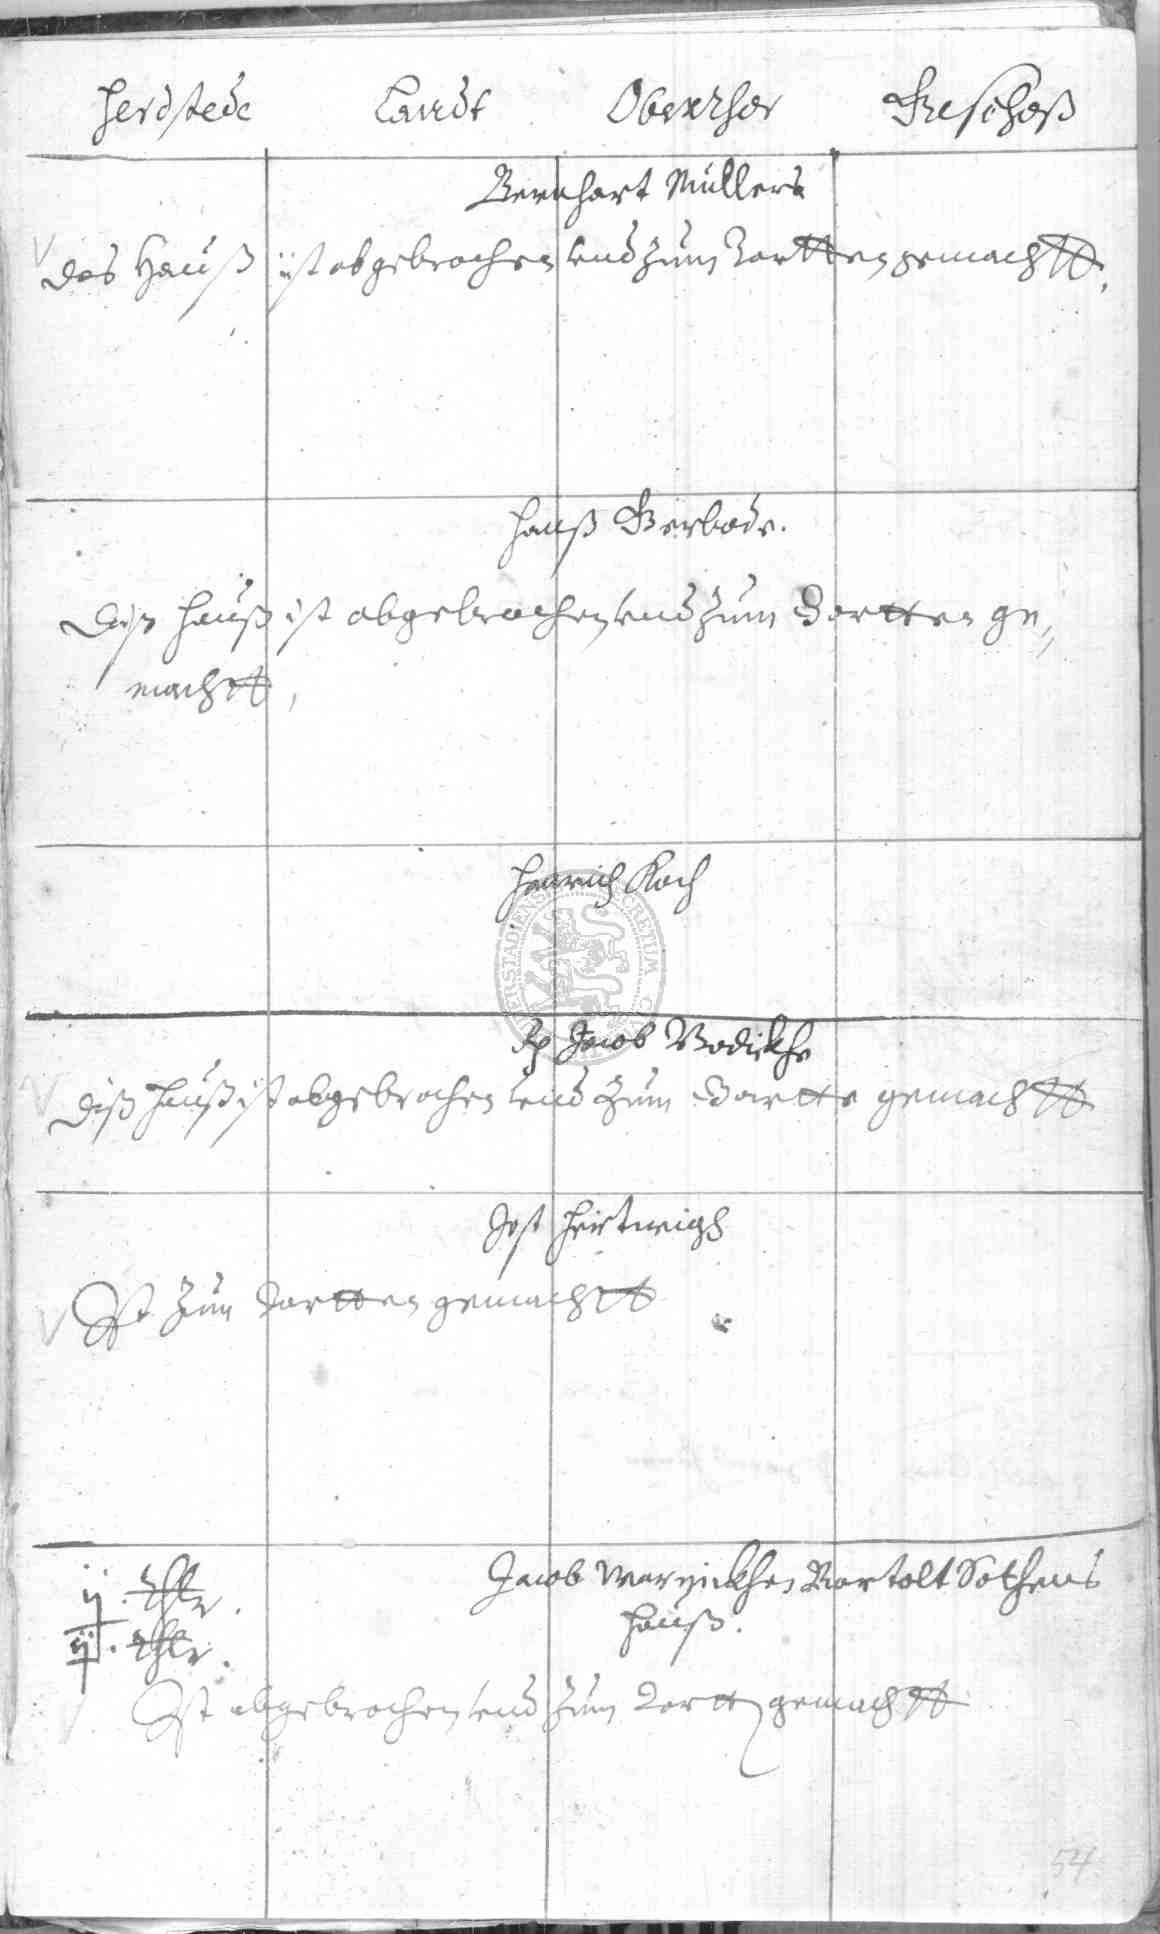 Herdstede Landt Oberthor Geschoß
Bernhart Müllers
das Hauß ist abgebrochen vnd zum Gartten gemachtt.
Hanß Gerbode.
Diß Hauß ist abgebrochen vnd zum Gartten ge„
machtt,
Heinrich Koch
Jacob Wodickhe
Diß Hauß ist abgebrochen vnd zum Gartte gemachtt
Jost Hertwigh
Ist zum Gartten gemachtt
ij. thlr. Jacob Bartolt Sothens
ij. thlr. Hauß.
Ist abgebrochen vnd zum Gartten gemachtt
54